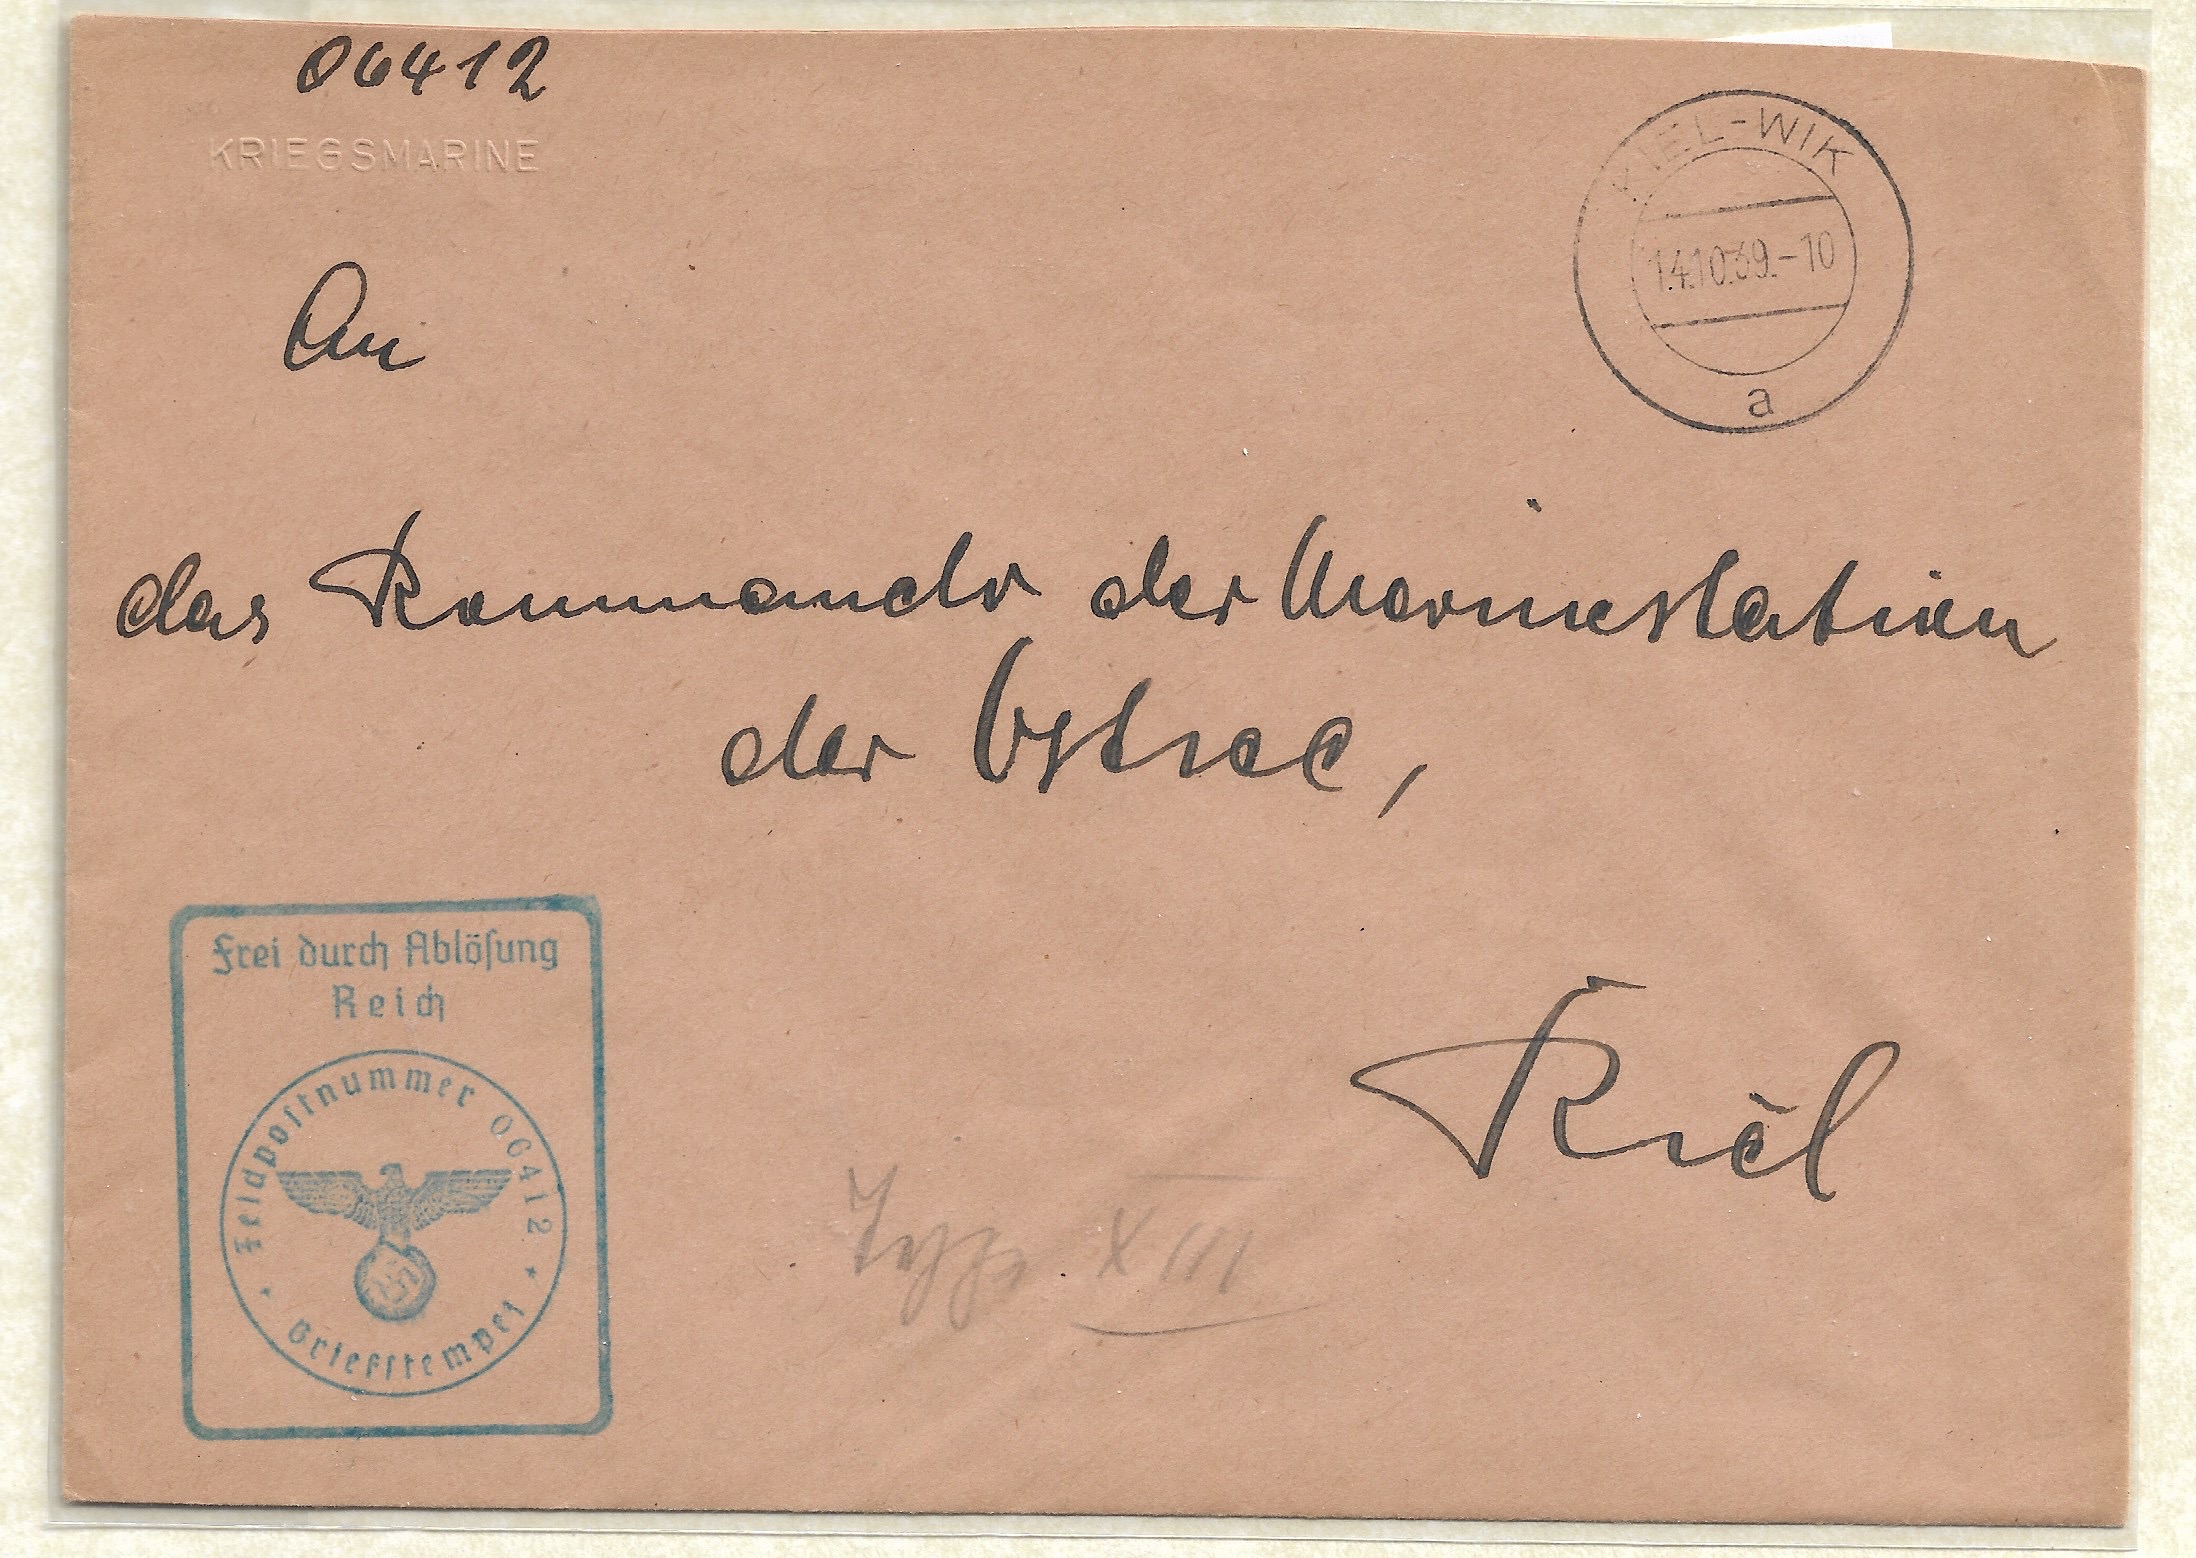 06412
KRIEGSMARINE
KIEL-WIK
14.10.39.-10
a
An
das Kommando der Marinestation
der Ostsee,
Kiel
Frei durch Ablösung
Reich
Feldpostnummer 06412
Briefstempel
Type XIII